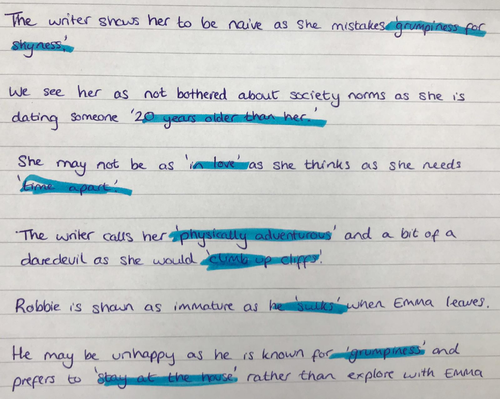 The writer shows her to be naive as she mistakes 'grumpiness for
shyness.'
We see her as not bothered about society norms as she is
dating someone '20 years older than her.'
She may not be as 'in love' as she thinks as she needs
'time apart.'
The writer calls her 'physically adventurous' and a bit of a
daredevil as she would 'climb up cliffs'.
Robbie is shown as immature as he 'sulks' when Emma leaves.
He may be unhappy as he is known for 'grumpiness' and
prefers to 'stay at the house' rather than explore with Emma